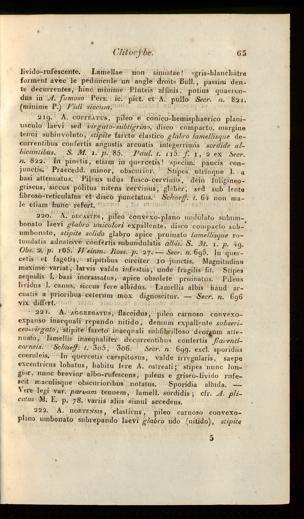 Clitocybe. 65
livido-rufescente. Lamellae non sinuatae! gris-blanchâtre
forment avec le pedoncule un angle droits Bull., passim den-
te decurrentes, hinc minime Pluteis affinis, potius quaeren-
dus in A. fumoso Pers. ic. pict. et A. pullo Secr. n. 821.
(minime P.) Vidi siccum.
219. A. COFFEATUS, pileo e conico-hemisphaerico plani-
usculo laevi sed virgato-subtigrino, disco compacto, margine
tenui subinvoluto, stipite farcto elastico glabro lamellisque de-
currentibus confertis angustis arcuatis integerrimis sordide al-
bicantibus. S. M. 1. p. 85. Paul. t. 115. f. 1, 2 ex Secr.
n. 822. In pinetis, etiam in quercetis? specim. paucis con-
junctis. Praeced. minor, obscurior. Stipes utrinque l. a
basi attenuatus. Pileus udus fusco-cervinus, dein fuligineo-
griseus, siccus politus nitens cervinus, glaber, sed sub lente
fibroso-reticulatus et disco punctatus. Schaeff. t. 64 non ma-
le etiam hunc refert.
220. A. DECASTES, pileo convexo-plano undulato subum-
bonato laevi glabro unicolori expallente, disco compacto sub-
umbonato, stipite solido glabro apice pruinato lamellisque ro-
tundatis adnatisve confertis subundulatis albis. S. M. 1. p. 49.
Obs. 2. p. 105. Weinm. Ross. p. 27. — Secr. n. 696. In quer-
cetis et fagetis, stipitibus circiter 10 junctis. Magnitudine
maxime variat; larvis valde infestus, unde fragilis fit. Stipes
aequalis l. basi incrassatus, apice obsolete pruinatus. Pileus
lividus l. canus, siccus fere albidus. Lamellis albis haud ar-
cuatis a prioribus ceterum mox dignoscitur. — Secr. n. 696
vix differt.
221. A. AGGREGATUS, flaccidus, pileo carnoso convexo-
expanso inaequali repando nitido, demum expallente
stipite farcto inaequali subfibrilloso deorsum atte-
nuato, lamellis inaequaliter decurrentibus confertis
Schaeff. t. 305, 306. Secr. n. 699. excl. sporidiis
coeruleis. In quercetis caespitosus, valde irregularis, saepe
excentricus lobatus, habitu fere A. ostreati; stipes nunc lon-
gior, nunc brevior albo-rufescens, pileus e griseo-livido rufe-
scit maculisque obscurioribus notatus. Sporidia albida. —
Vere legi var. parvam tenuem, lamell. sordidis; cfr. A. pli-
catus M. E. p. 78. variis aliis simul accedens.
222. A. HORTENSIS, elasticus, pileo carnoso convexo-
plano umbonato subrepando laevi glabro udo (nitido), stipite
5